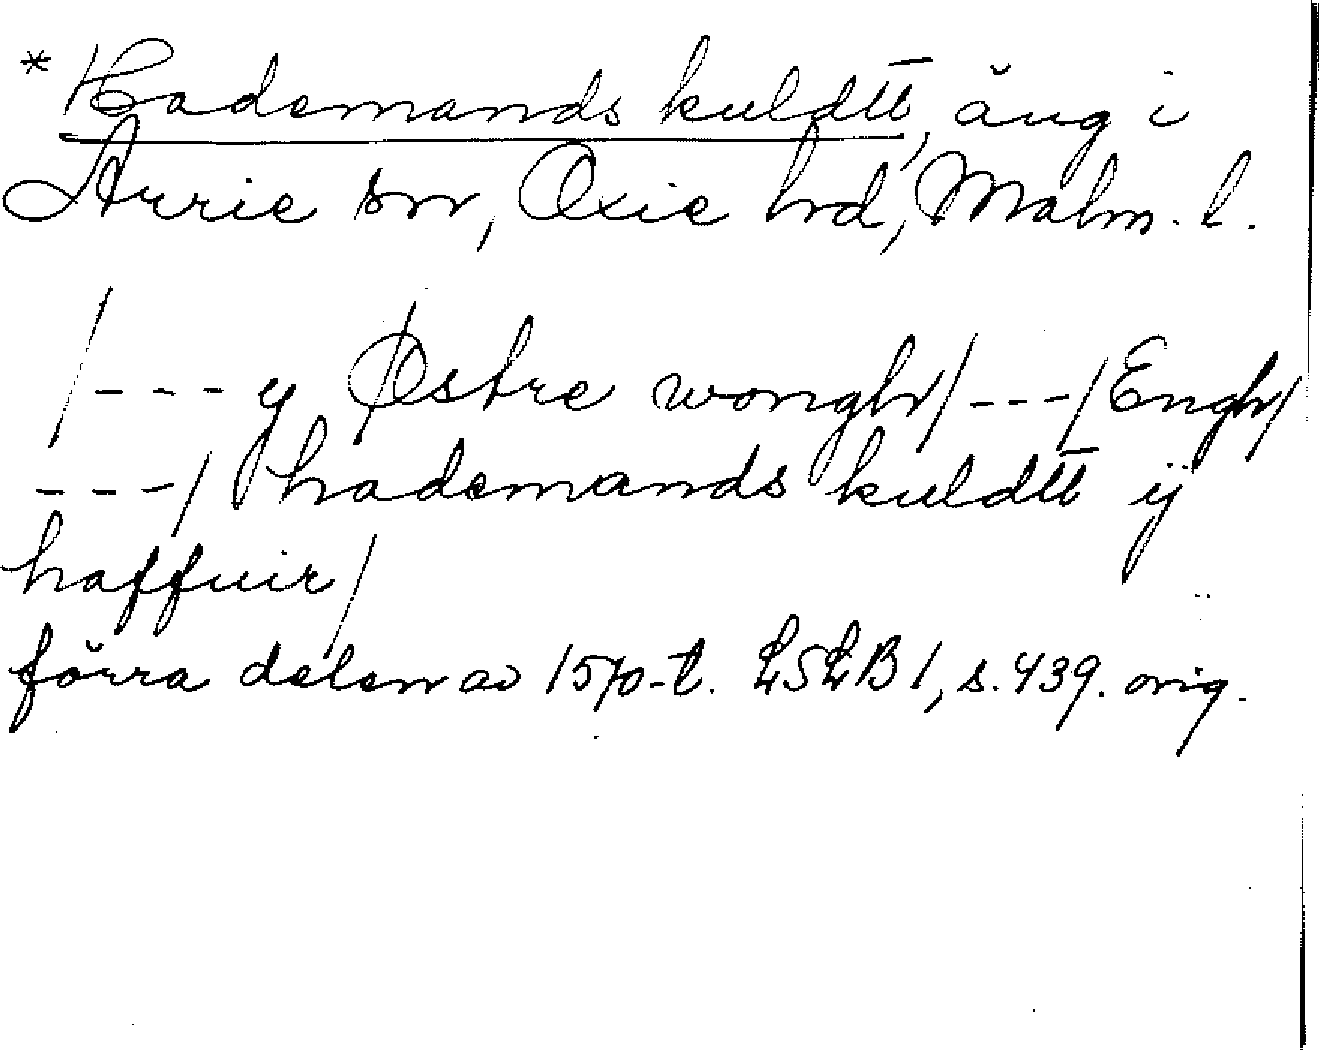 *Hademands kuldtt, äng i
Arrie sn, Oxie hrd, Malm. l.
/---y Østre wongh/---/Engh/
---/ hademands kuldtt ÿ
haffuir/
förra delen av 1570-t. LSLB 1, s. 439. orig.